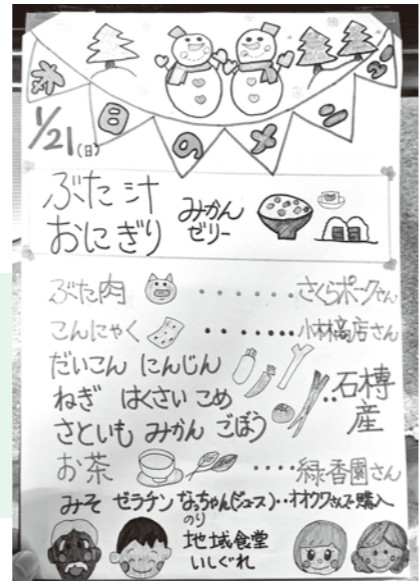 本日のメニュー
1/21(日)
ぶた汁 みかん
おにぎり ゼリー
ぶた肉 ・・・・・・さくらポークさん
こんにゃく ・・・・・・小林商店さん
だいこん にんじん
ねぎ はくさい こめ ・・石榑産
さといも みかん ごぼう
お茶 ・・・・緑香園さん
みそ ゼラチン なっちゃん(ジュース)・・オオクワさんで購入
のり
地域食堂
いしぐれ